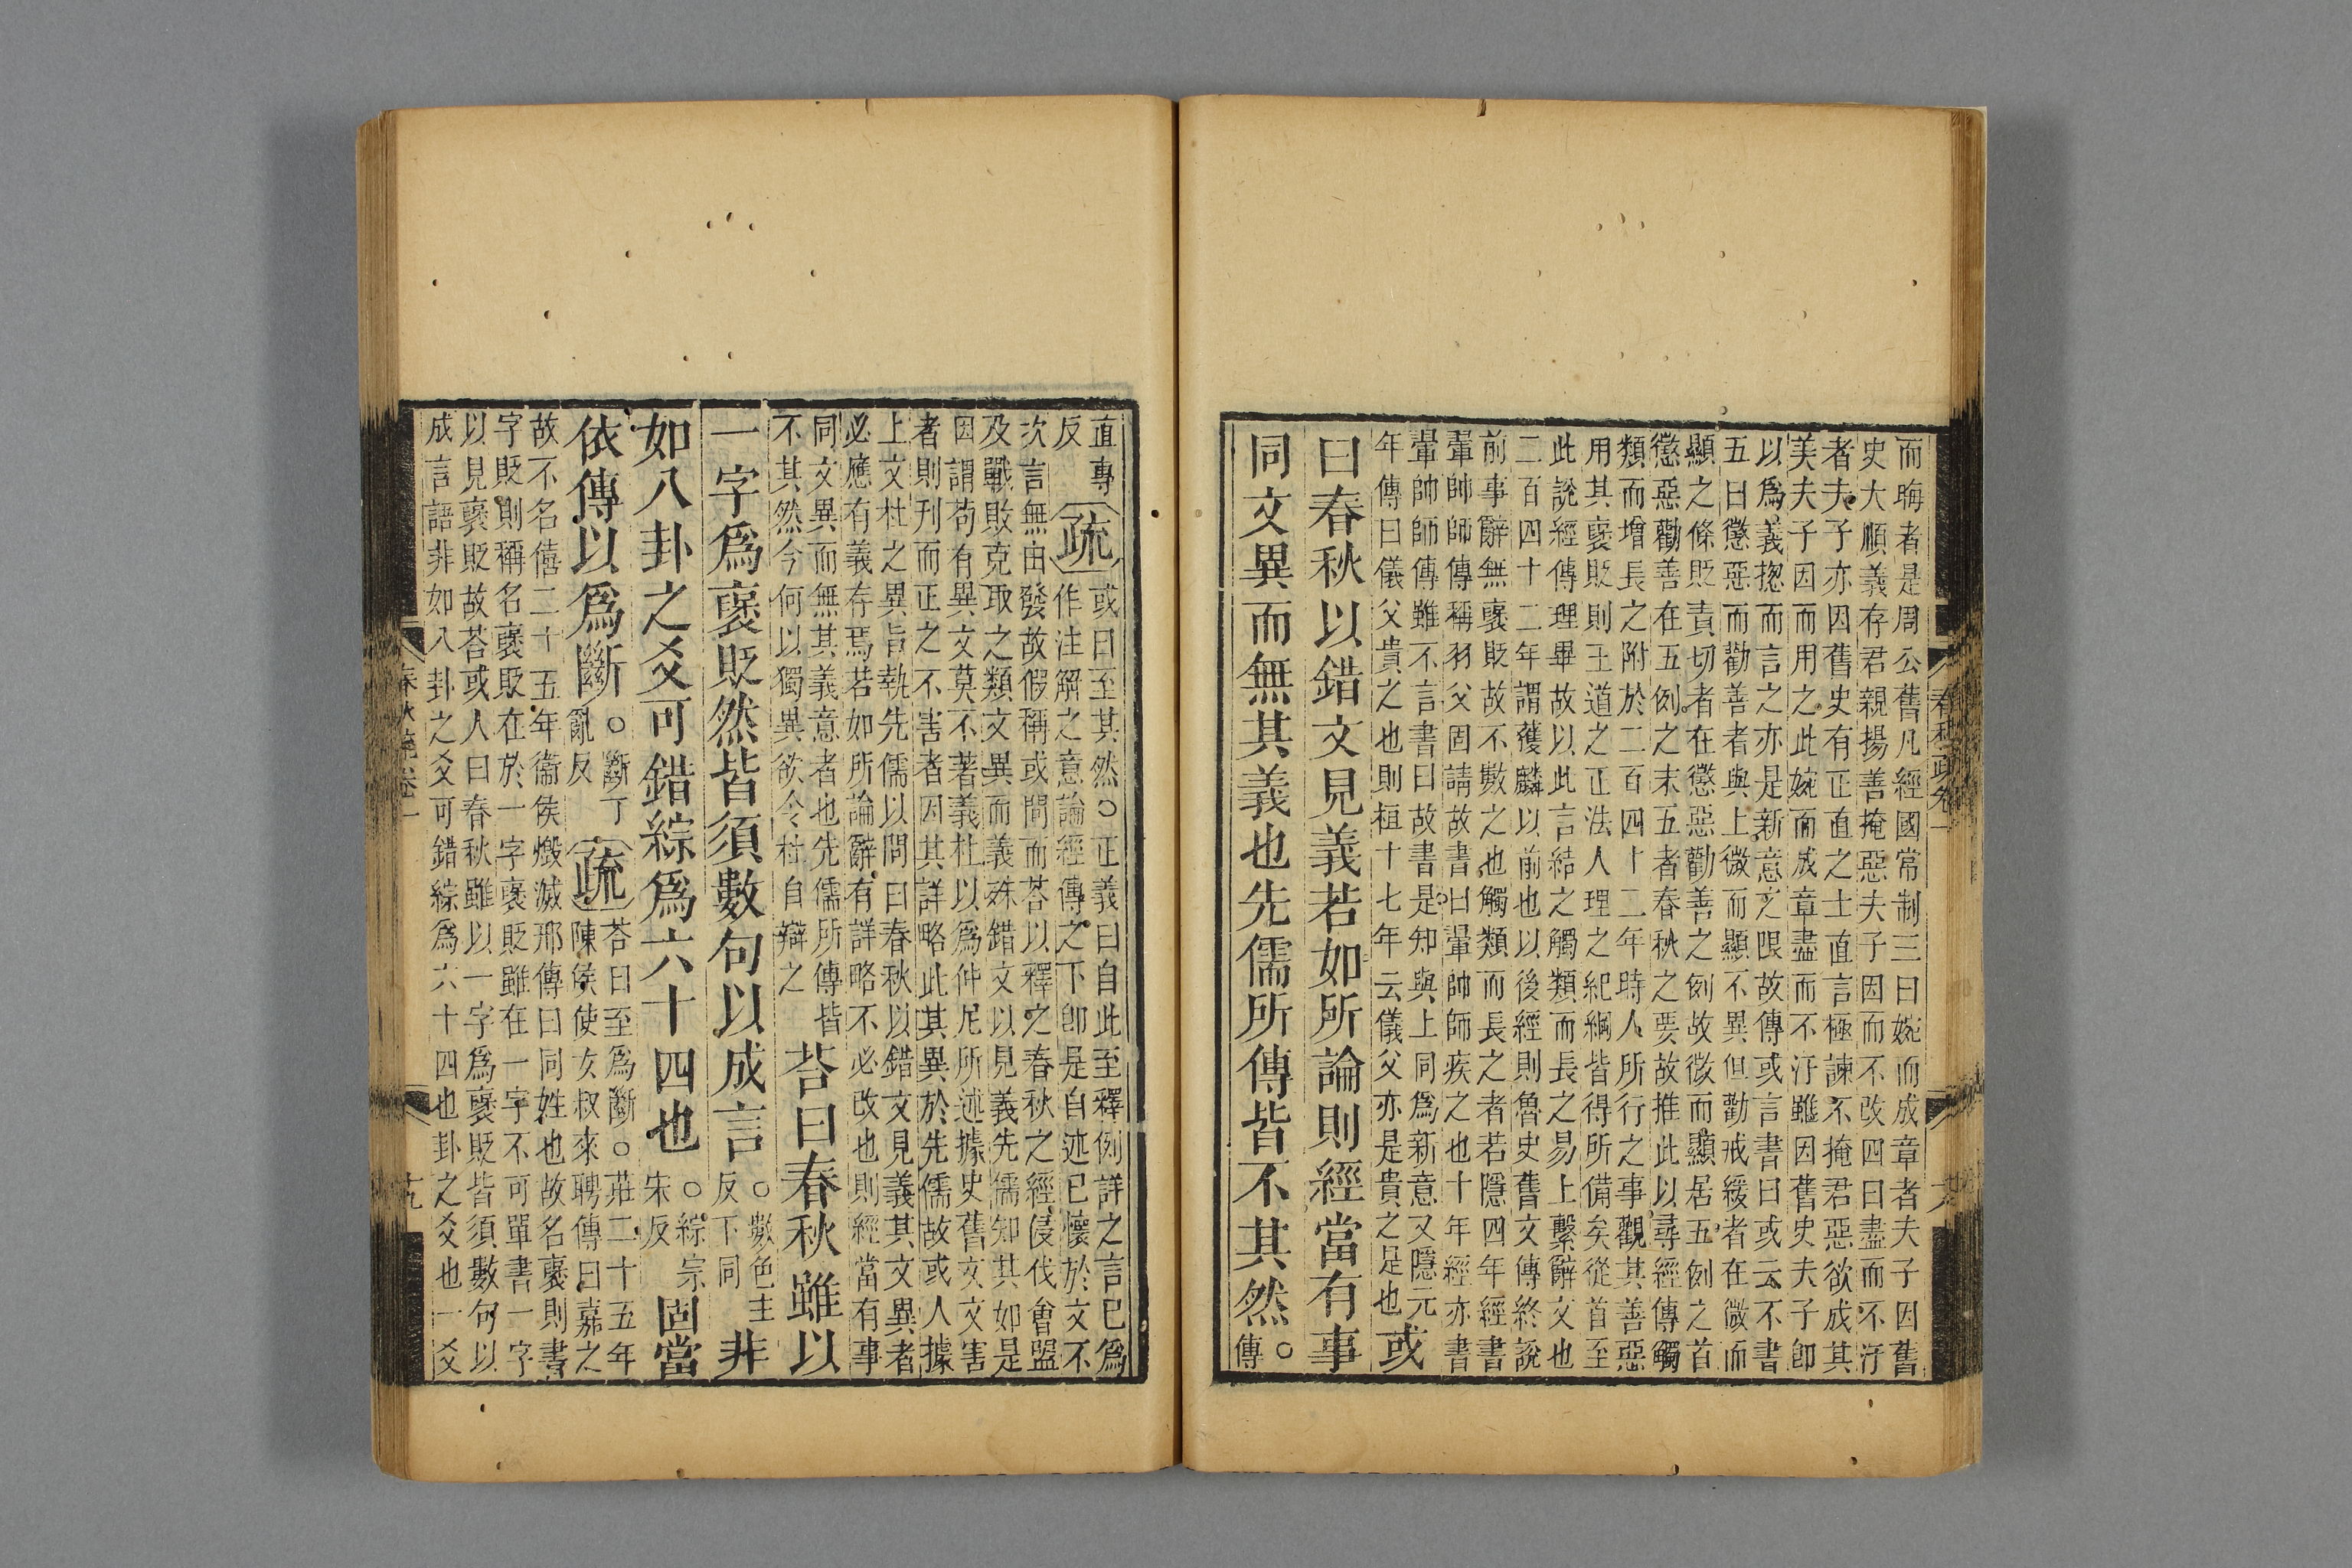 而晦者是周公舊凡經國常制三曰婉而成章者夫子因舊
史大順義存君親揚善掩惡夫子因而不改四曰盡而不汙
者夫子亦因舊史有正直之士直言極諫不掩君惡欲成其
美夫子因而用之此婉而成章盡而不汙雖因舊史夫子卽
以爲義揔而言之亦是新意之限故傳或言書曰或云不書
五曰懲惡而勸善者與上微而顯不異但勸戒緩者在微而
顯之條貶責切者在懲惡勸善之例故微而顯居五例之首
懲惡勸善在五例之末五者春秋之要故推此以尋經傳觸
類而增長之附於二百四十二年時人所行之事觀其善惡
用其襃貶則王道之正法人理之紀綱皆得所備矣從首至
此說經傳理畢故以此言結之觸類而長之易上繫辭文也
二百四十二年謂獲麟以前也以後經則魯史舊文傳終說
前事辭無襃貶故不數之也觸類而長之者若隱四年經書
翬帥師傳稱羽父固請故書曰翬帥師疾之也十年經亦書
翬帥師傳雖不言書曰故書是知與上同爲新意又隱元
年傳曰儀父貴之也則桓十七年云儀父亦是貴之是也
或
曰春秋以錯文見義若如所論則經當有事
同文異而無其義也先儒所傳皆不其然
○
傳
春秋疏卷一
直專
反
疏
或曰至其然○正義曰自此至釋例詳之言已爲
作注解之意論經傳之下卽是自述已懷於文不
次言無由發故假稱或問而荅以釋之春秋之經侵伐會盟
及戰敗克取之類文異而義殊錯文以見義先儒知其如是
因謂苟有異文莫不著義杜以爲仲尼所述據史舊文文害
者則刊而正之不害者因其詳略此其異於先儒故或人據
上文杜之異旨執先儒以問曰春秋以錯文見義其文異者
必應有義存焉若如所論辭有詳略不必改也則經當有事
同文異而無其義意者也先儒所傳皆
不其然今何以獨異欲令杜自辯之
荅曰春秋雖以
一字爲襃貶然皆須數句以成言
○數色主
反下同
非
如八卦之爻可錯綜爲六十四也
○綜宗
宋反
固當
依傳以爲斷
○斷丁
亂反
疏
荅曰至爲斷○莊二十五年
陳侯使女叔來聘傳曰嘉之
故不名僖二十五年衞侯燬滅邢傳曰同姓也故名襃則書
字貶則稱名襃貶在於一字襃貶雖在一字不可單書一字
以見襃貶故荅或人曰春秋雖以一字爲襃貶皆須數句以
成言語非如八卦之爻可錯綜爲六十四也卦之爻也一爻
春秋疏卷一